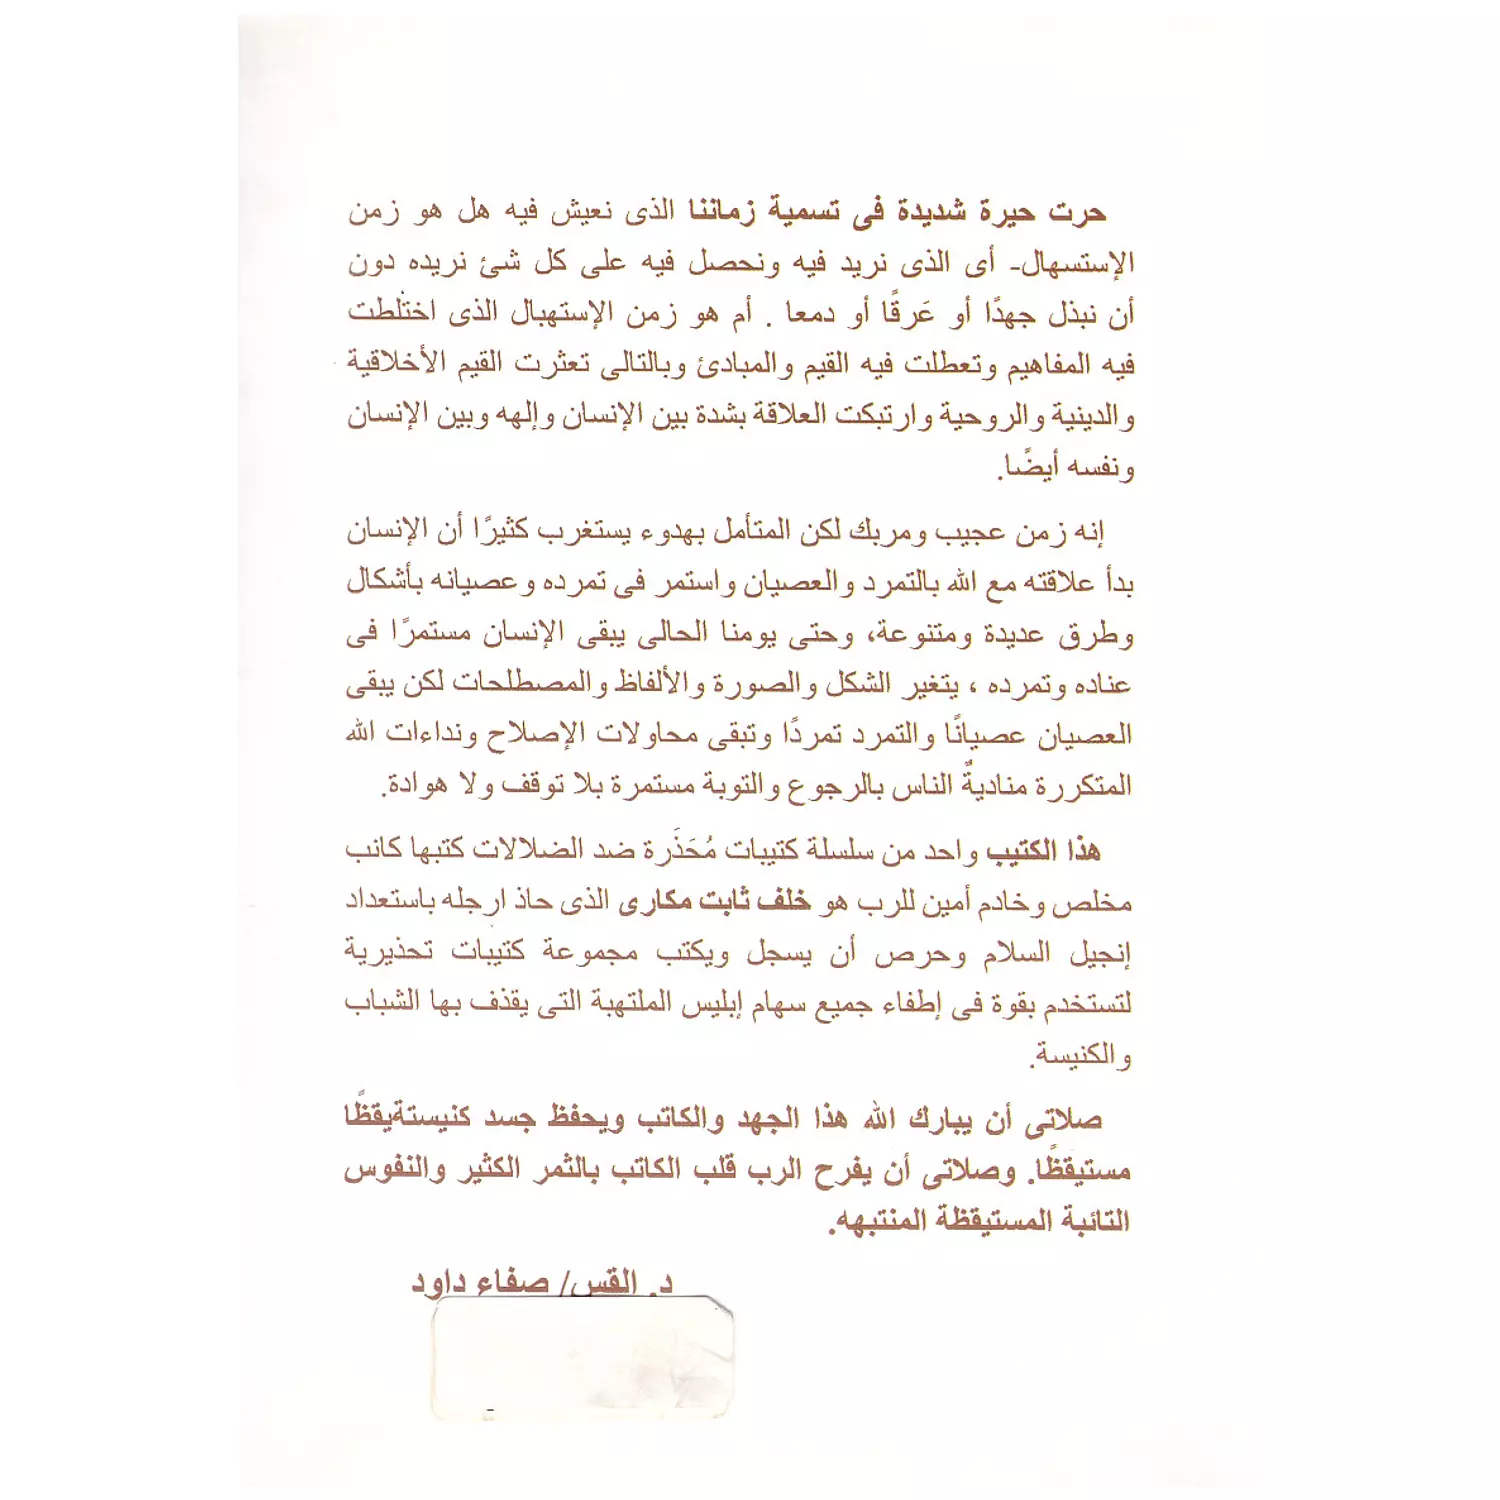 حرت حيرة شديدة فى تسمية زماننا الذى نعيش فيه هل هو زمن
الإستسهال- أى الذى نريد فيه ونحصل فيه على كل شئ نريده دون
أن نبذل جهدًا أو عَرقًا أو دمعا . أم هو زمن الإستهبال الذى اختلطت
فيه المفاهيم وتعطلت فيه القيم والمبادئ وبالتالى تعثرت القيم الأخلاقية
والدينية والروحية وارتبكت العلاقة بشدة بين الإنسان وإلهه وبين الإنسان
ونفسه أيضًا.
إنه زمن عجيب ومربك لكن المتأمل بهدوء يستغرب كثيرًا أن الإنسان
بدأ علاقته مع الله بالتمرد والعصيان واستمر فى تمرده وعصيانه بأشكال
وطرق عديدة ومتنوعة، وحتى يومنا الحالى يبقى الإنسان مستمرًا فى
عناده وتمرده ، يتغير الشكل والصورة والألفاظ والمصطلحات لكن يبقى
العصيان عصيانًا والتمرد تمردًا وتبقى محاولات الإصلاح ونداءات الله
المتكررة مناديةٌ الناس بالرجوع والتوبة مستمرة بلا توقف ولا هوادة.
هذا الكتيب واحد من سلسلة كتيبات مُحَذَرة ضد الضلالات كتبها كاتب
مخلص وخادم أمين للرب هو خلف ثابت مكارى الذى حاذ ارجله باستعداد
إنجيل السلام وحرص أن يسجل ويكتب مجموعة كتيبات تحذيرية
لتستخدم بقوة فى إطفاء جميع سهام إبليس الملتهبة التى يقذف بها الشباب
والكنيسة.
صلاتى أن يبارك الله هذا الجهد والكاتب ويحفظ جسد كنيستةيقظًا
مستيقظًا. وصلاتى أن يفرح الرب قلب الكاتب بالثمر الكثير والنفوس
التائبة المستيقظة المنتبهه.
د. القس/ صفاء داود